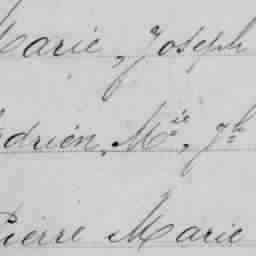 Marie, Joseph
Adrien, M^ie, J^h
Pierre Marie